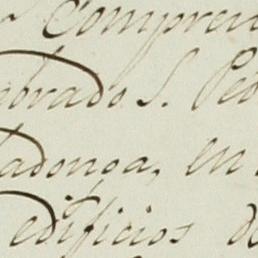 Compren
grado S. Ped
adonga, en
edificios de